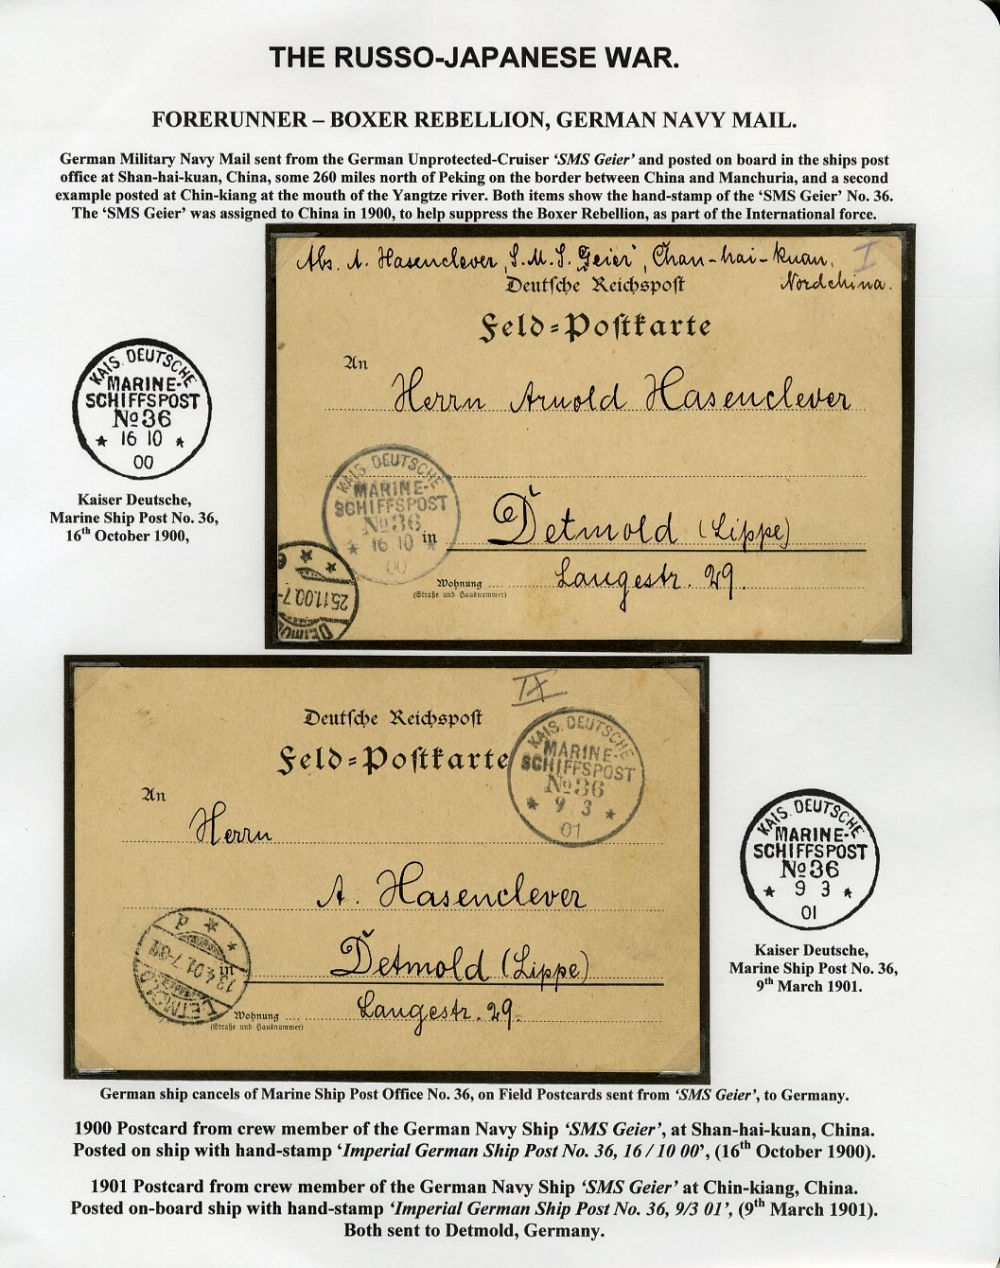 THE RUSSO-JAPANESE WAR.
FORERUNNER – BOXER REBELLION, GERMAN NAVY MAIL.
German Military Navy Mail sent from the German Unprotected-Cruiser ‘SMS Geier’ and posted on board in the ships post
office at Shan-hai-kuan, China, some 260 miles north of Peking on the border between China and Manchuria, and a second
example posted at Chin-kiang at the mouth of the Yangtze river. Both items show the hand-stamp of the ‘SMS Geier’ No. 36.
The ‘SMS Geier’ was assigned to China in 1900, to help suppress the Boxer Rebellion, as part of the International force.
Abs. A. Hasenclever, S.M.S. „Geier“, Chan-hai-kuan,
Nordchina.
I
Deutsche Reichspost
Feld-Postkarte
An
Herrn Arnold Hasenclever
KAIS. DEUTSCHE
MARINE-
SCHIFFSPOST
No 36
* 16 10 *
00
in
Detmold (Lippe)
Wohnung
(Straße und Hausnummer)
Langestr. 29.
25.11.00.7-
DETMOLD
KAIS. DEUTSCHE
MARINE-
SCHIFFSPOST
No 36
* 16 10 *
00
Kaiser Deutsche,
Marine Ship Post No. 36,
16th October 1900,
IX
Deutsche Reichspost
Feld-Postkarte
KAIS. DEUTSCHE
MARINE-
SCHIFFSPOST
No 36
* 9 3 *
01
An
Herrn
A. Hasenclever
in
Detmold (Lippe)
Wohnung
(Straße und Hausnummer)
Langestr. 29.
DETMOLD
13.4.01.7-8
KAIS. DEUTSCHE
MARINE-
SCHIFFSPOST
No 36
* 9 3 *
01
Kaiser Deutsche,
Marine Ship Post No. 36,
9th March 1901.
German ship cancels of Marine Ship Post Office No. 36, on Field Postcards sent from ‘SMS Geier’, to Germany.
1900 Postcard from crew member of the German Navy Ship ‘SMS Geier’, at Shan-hai-kuan, China.
Posted on ship with hand-stamp ‘Imperial German Ship Post No. 36, 16 / 10 00’, (16th October 1900).
1901 Postcard from crew member of the German Navy Ship ‘SMS Geier’ at Chin-kiang, China.
Posted on-board ship with hand-stamp ‘Imperial German Ship Post No. 36, 9/3 01’, (9th March 1901).
Both sent to Detmold, Germany.